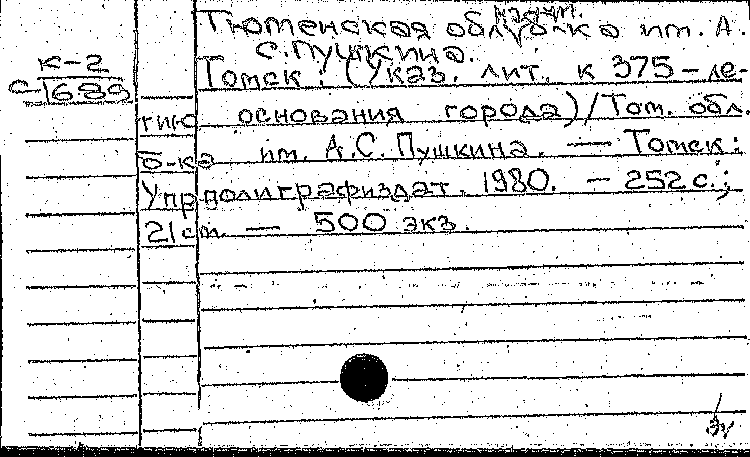 Тюменская обл. научн. б-ка им. А.
С. Пушкина.
К-2
С 1689
Томск : (Указ. лит. к 375-ле-
тию основания города)/Том. обл.
б-ка им. А.С. Пушкина. — Томск :
Упрполиграфиздат. 1980. — 252 с. ;
21 см. — 500 экз.